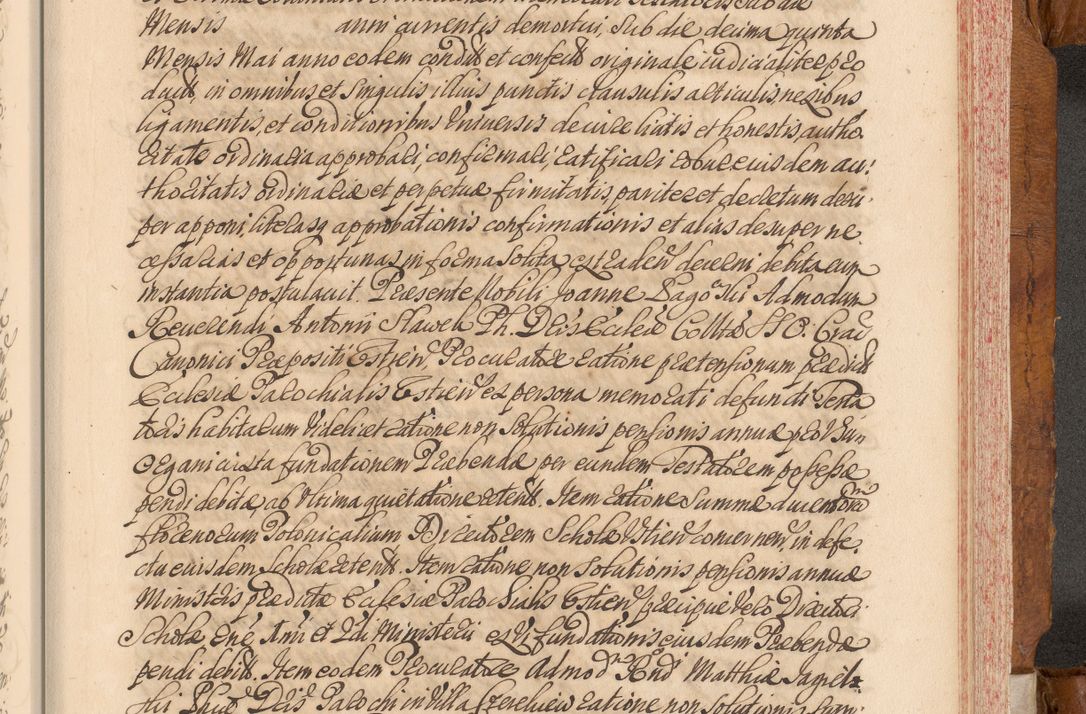 Mensis anni currentis demortui, Sub die decima quinta
Mensis Mai anno eodem condit et confect originale iudicialiter pro
duct, in omnibus et Singulis illius punctis clausulis articulis nexibus
ligamentis, et conditionibus Universis de iure licitis et honestis, autho
ritate ordinaria approbari, confirmari ratificari robur eiusdem au:
thoritatis ordinariæ et perpetuæ firmitatis pariter et decretum desu:
per apponi, literasq approbationis confirmationis et alias desuper ne
cessarias et opportunas in forma Solita decerni debita cum
instantia postulavit. Præsente Nobili Joanne Admodum
Reverendi Antonii Ph. Eccleæ Colltæ SSO. Crac
Canonici Præpositi Procuratore ratione prætensionum prædict
Ecclesiæ Parochialis ex persona memorati defuncti Testa
toris habitarum Videlicet ratione non Solutionis pensionis annuæ pro Usu
Organi iuxta fundationem Præbendæ per eundem Testatorem possessæ
pendi debitæ, ab Ultima quietatione retent. Item ratione Summæ ducentorum
florenorum Polonicalium Directorem Scholæ in defe
ctu eiusdem Scholæ retent. Item ratione non Solutionis pensionis annuæ
Ministris prædictæ Ecclesiæ Parochialis præcipue Vero Directori
Scholæ et Ministerii ex Vi fundationis eiusdem Præbendæ
pendi debit. Item eodem Procuratore Admod Rndi Matthiæ
Parochi in Villa ratione non Solutionis